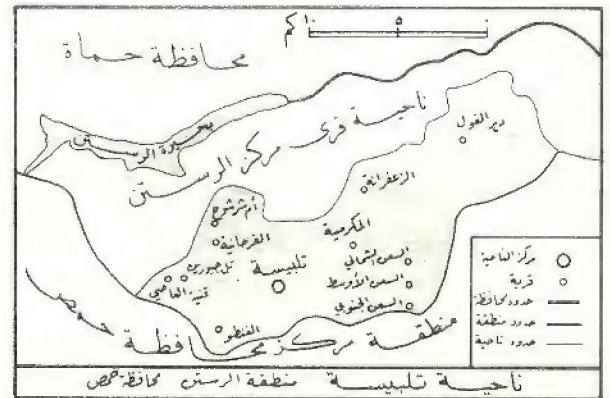 ١٠ كم
٥
محافظة حماة
ناحية قرى مركز الرستن
بحيرة الرستن
دير الفول
الزعفرانة
أم شرشوح
المكرمية
الفرحانية
السعن الشمالي
تلبيسة
تل جبوري
قنية العاصي
السعن الأوسط
السعن الجنوبي
الغنطو
منطقة مركز محافظة حمص
مركز الناحية
قرية
حدود محافظة
حدود منطقة
حدود ناحية
ناحية تلبيسة منطقة الرستن محافظة حمص